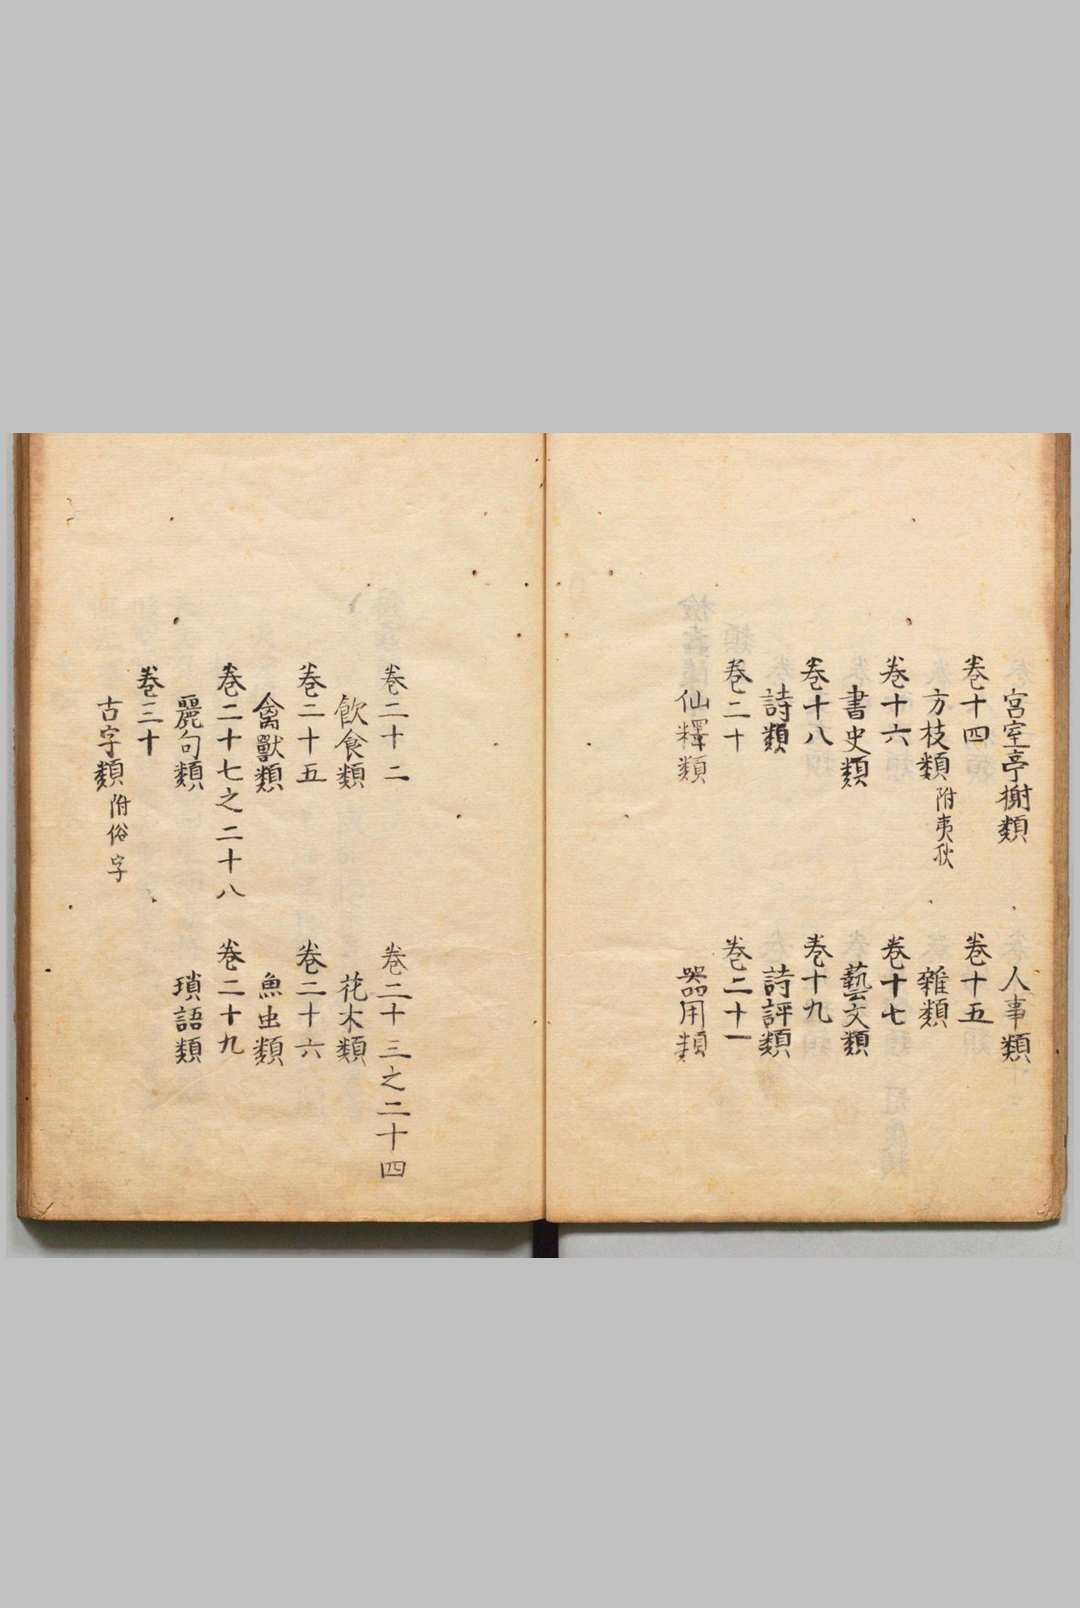 宮室亭榭類　人事類
卷十四　卷十五
方技類附夷狄　雜類
卷十六　卷十七
書史類　藝文類
卷十八　卷十九
詩類　詩評類
卷二十　卷二十一
仙釋類　器用類
卷二十二　卷二十三之二十四
飲食類　花木類
卷二十五　卷二十六
禽獸類　魚虫類
卷二十七之二十八　卷二十九
麗句類　瑣語類
卷三十
古字類附俗字